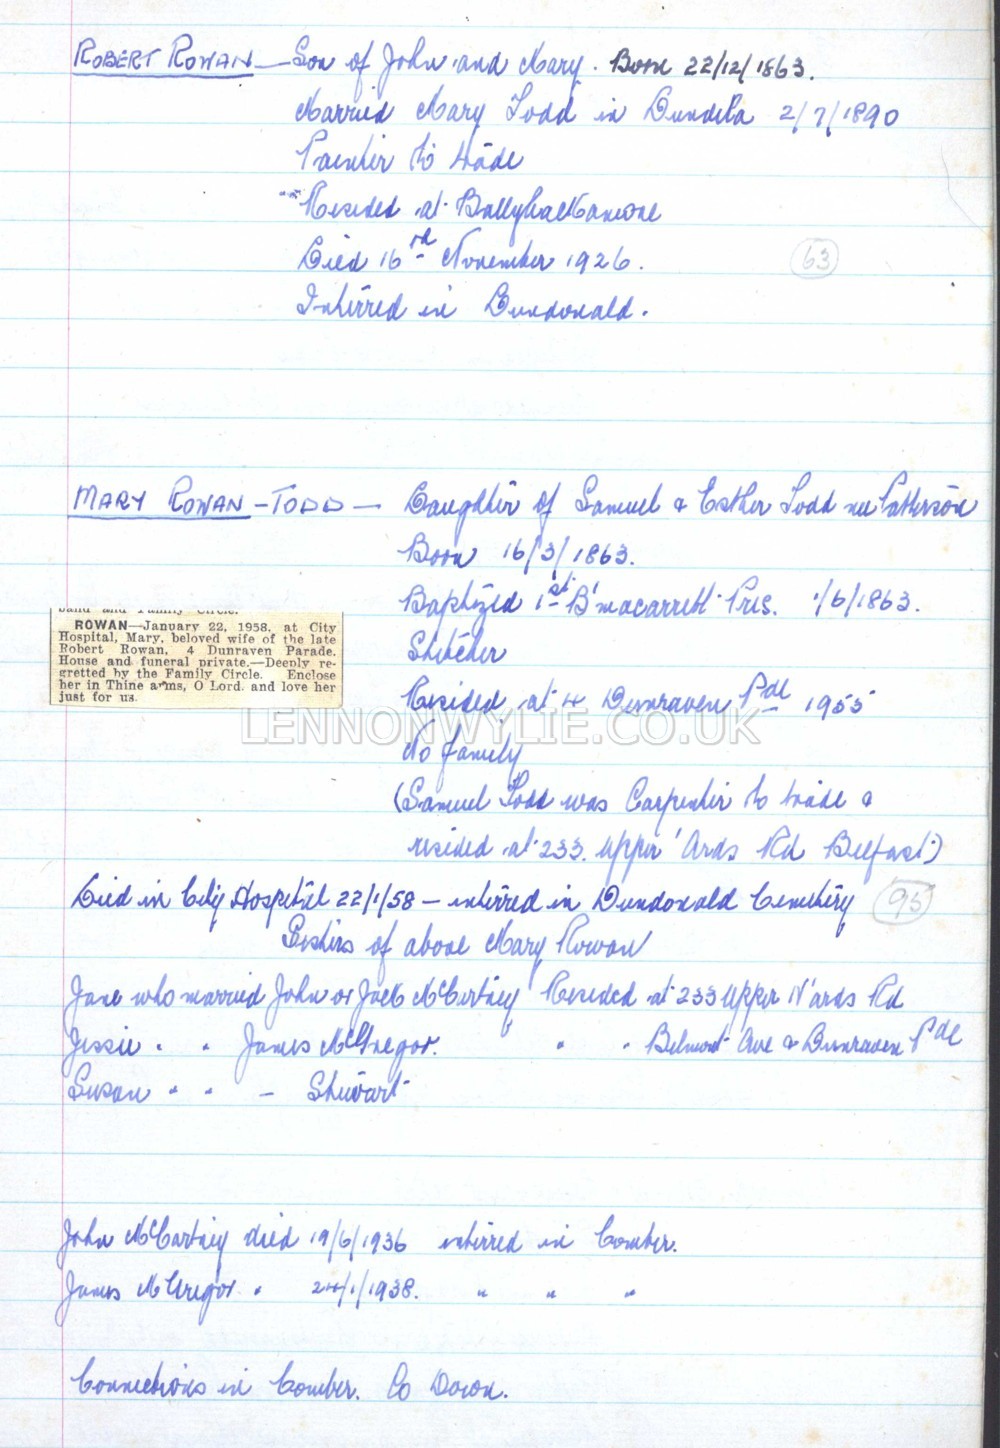 ROBERT ROWAN — Son of John and Mary. Born 22/12/1863.
Married Mary Todd in Dundela 2/7/1890
Painter to trade
Resided at Ballyhackamore
Died 16rd November 1926. 63
Interred in Dundonald.
MARY ROWAN - TODD — Daughter of Samuel & Esther Todd nee Patterson
Born 16/3/1863.
Baptized 1st B'macarrett Pres. 1/6/1863.
Stitcher
Resided at 4 Dunraven Pde 1955
No family
(Samuel Todd was Carpenter to trade &
resided at 233. Upper 'Ards Rd Belfast)
band and Family Circle.
ROWAN—January 22, 1958, at City
Hospital, Mary, beloved wife of the late
Robert Rowan, 4 Dunraven Parade.
House and funeral private.—Deeply re-
gretted by the Family Circle. Enclose
her in Thine arms, O Lord, and love her
just for us.
LENNONWYLIE.CO.UK
Died in City Hospital 22/1/58 — interred in Dundonald Cemetery 95
Sisters of above Mary Rowan
Jane who married John or Jack McCartney Resided at 233 Upper N'ards Rd
Jessie " " James McGregor. " " Belmont Ave & Dunraven Pde
Susan " " — Stewart
John McCartney died 19/6/1936 interred in Comber.
James McGregor " 24/1/1938. " " "
Connections in Comber. Co Down.